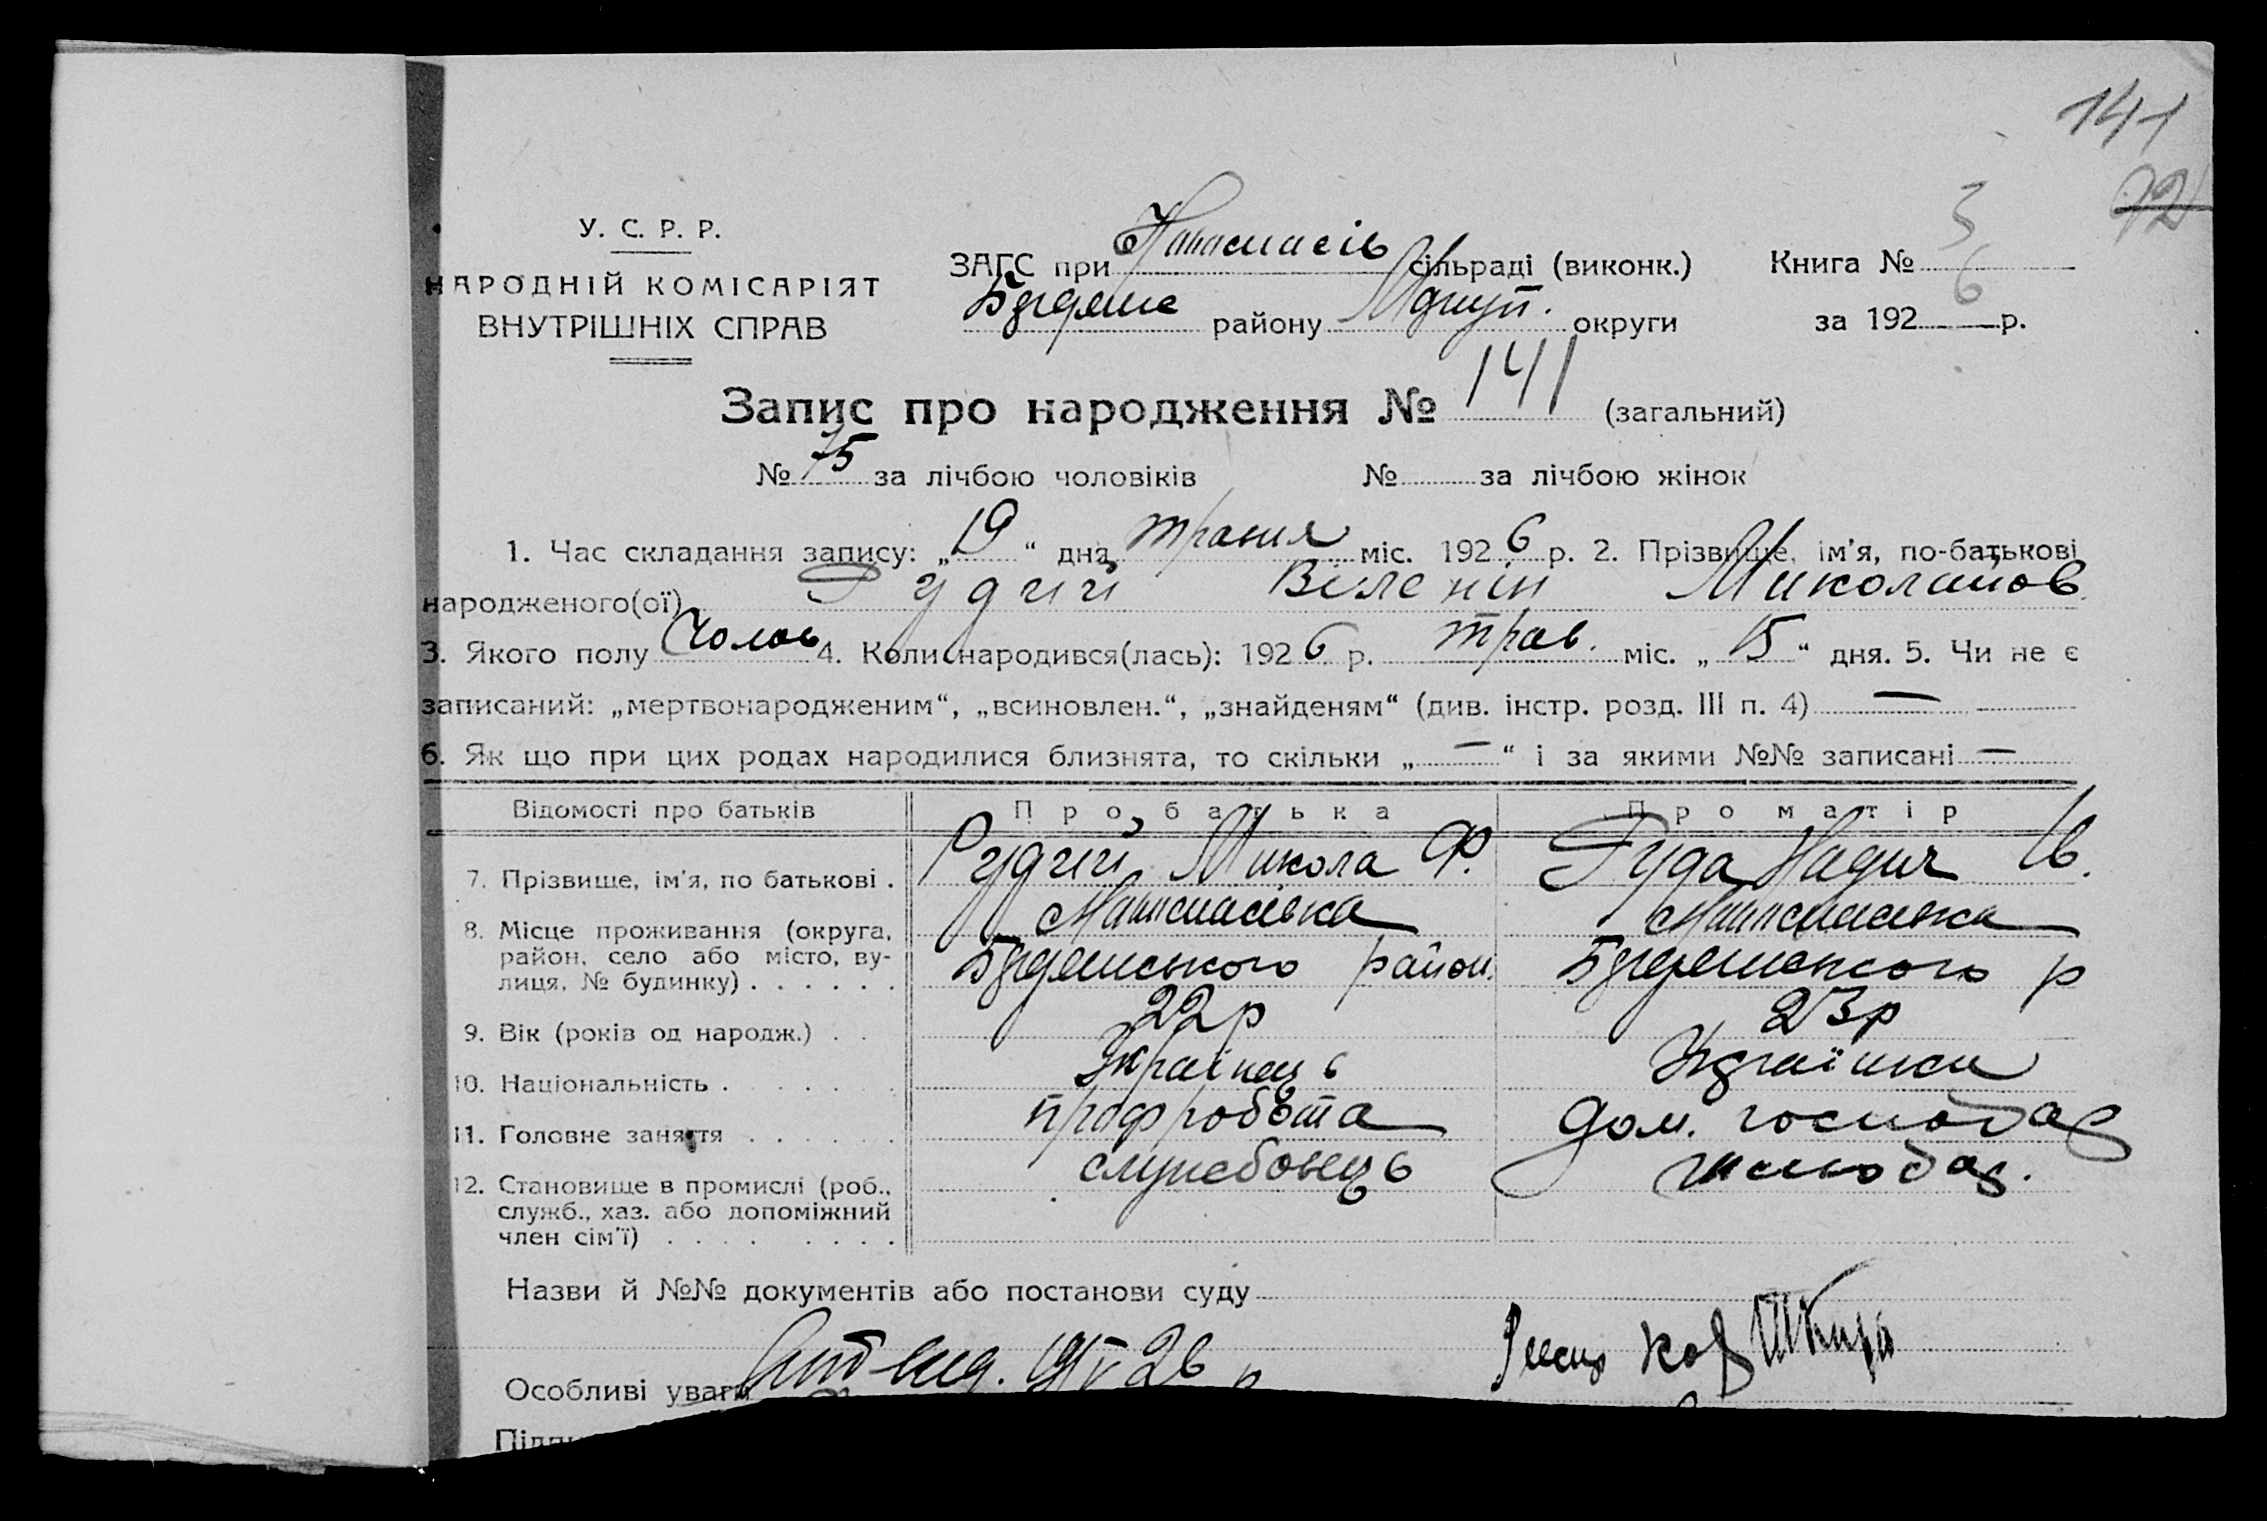 141
72
У. С. Р. Р.
НАРОДНІЙ КОМІСАРІЯТ
ВНУТРІШНІХ СПРАВ
ЗАГС при сільраді (виконк.)
району округи
Книга № 3
за 192 6 р.
Запис про народження № 141 (загальний)
№ 75 за лічбою чоловіків № за лічбою жінок
1. Час складання запису: „ 19 “ дня травня міс. 192 6 р. 2. Прізвище, ім'я, по-батькові
народженого(ої) Рудий Віленін Миколайов
3. Якого полу Чолов 4. Коли народився(лась): 192 6 р. трав. міс. „ 15 “ дня. 5. Чи не є
записаний: „мертвонародженим“, „всиновлен.“, „знайденям“ (див. інстр. розд. III п. 4) —
6. Як що при цих родах народилися близнята, то скільки „ — “ і за якими №№ записані —
Відомості про батьків Про батька Про матір
7. Прізвище, ім'я, по батькові . Рудий Микола Ф. Руда Надія Ів.
8. Місце проживання (округа,
район, село або місто, ву-
лиця, № будинку) . . . . . . район. р
9. Вік (років од народж.) . . 22 р 23 р
10. Національність . . . . Українець Українка
11. Головне заняття . . . . . проф робота дом. господар
12. Становище в промислі (роб.,
служб., хаз. або допоміжний
член сім'ї) . . . . . . . . службовець
Назви й №№ документів або постанови суду
Особливі уваги